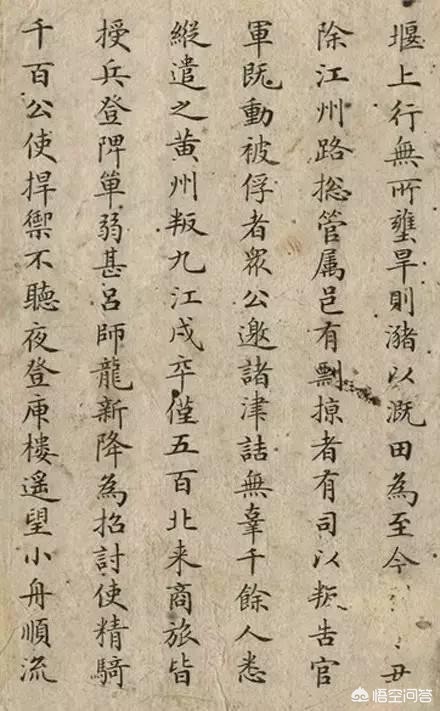 堰上行無所壅旱則瀦以溉田為至今丑
除江州路捴管属邑有剽掠者有司以叛告官
軍既動被俘者眾公邀諸津詰無辜千餘人悉
縱遣之黄州叛九江戍卒僅五百北来商旅皆
授兵登陴單弱甚吕師龍新降為招討使精騎
千百公使捍禦不聽夜登庾楼遥望小舟順流
悟空问答